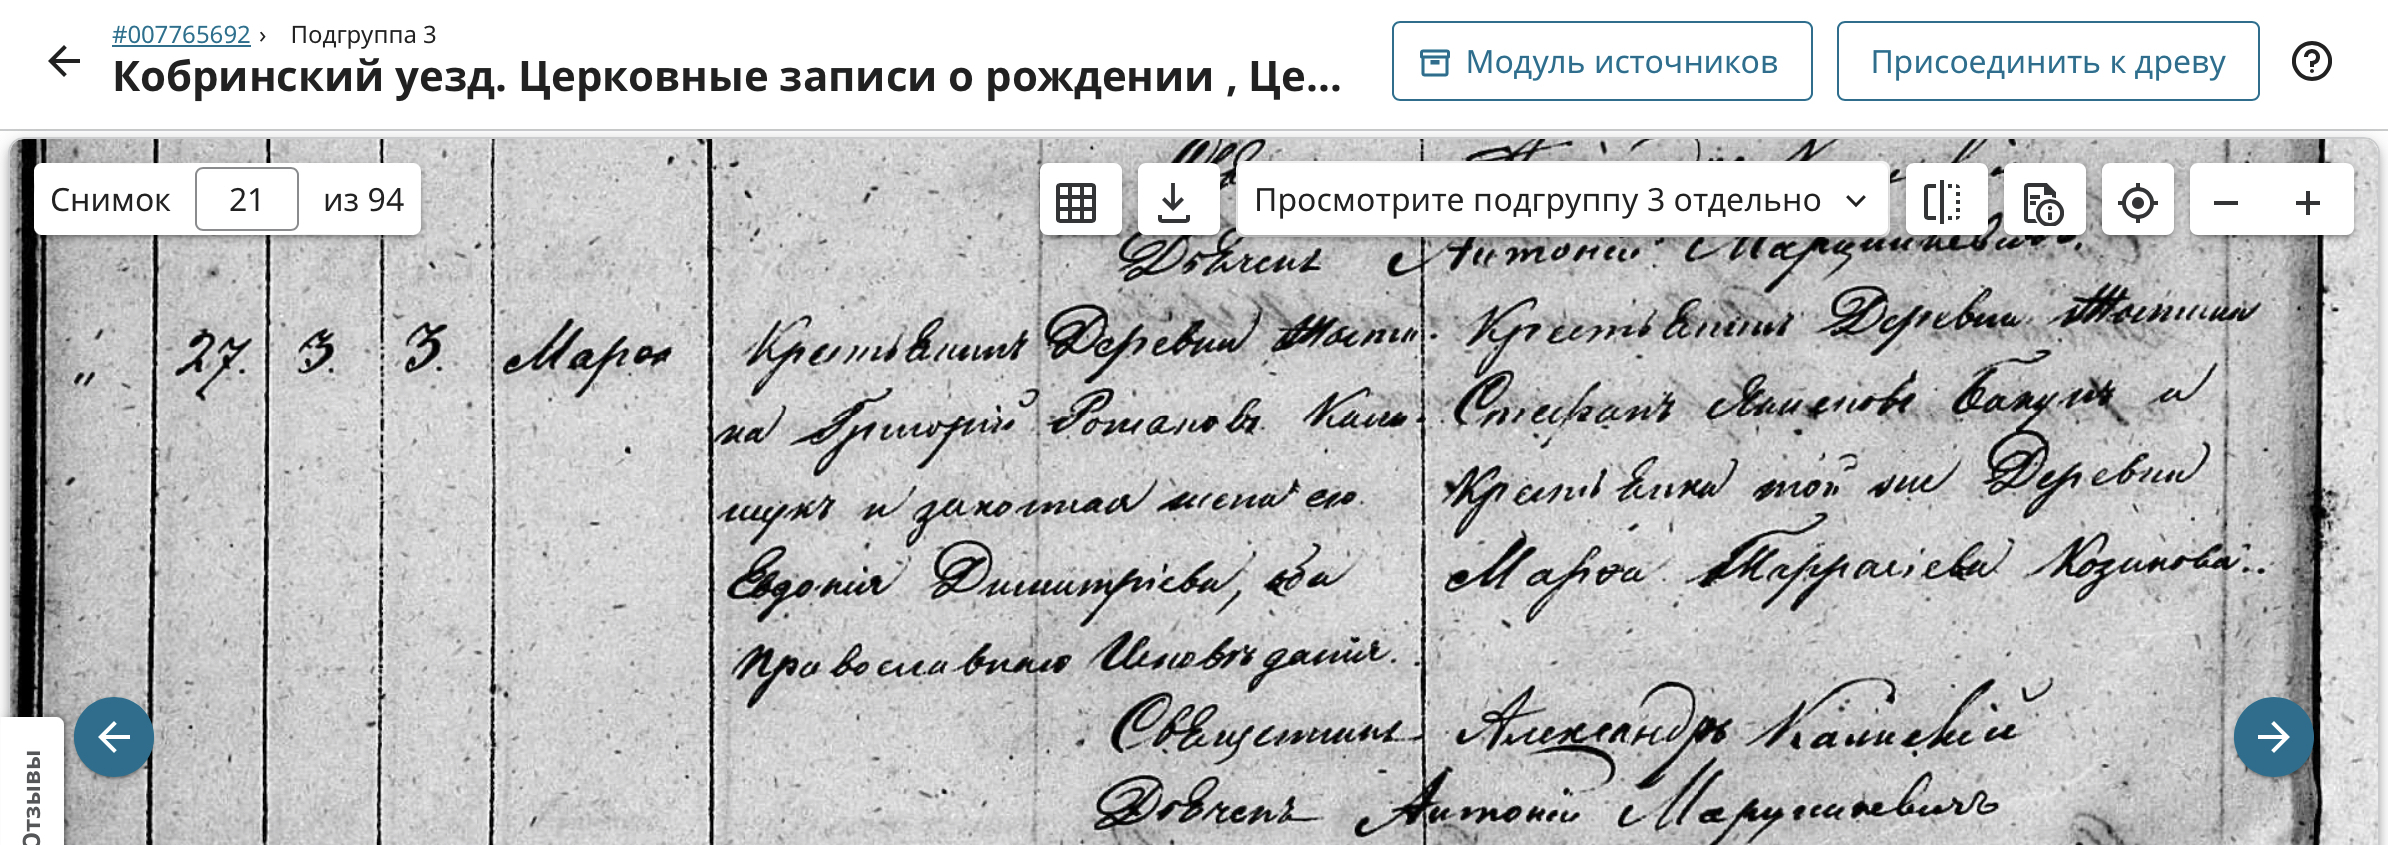 #007765692 › Подгруппа 3
Кобринский уезд. Церковные записи о рождении , Це...
Модуль источников
Присоединить к древу
Снимок 21 из 94
Просмотрите подгруппу 3 отдельно
Дьячекъ Антоній Марушкевичъ.
„ 27. 3. 3. Марѳа
Крестьянинъ Деревни
на Григорій Романовъ
щукъ и законная жена его
Евдокія Димитріева, оба
православнаго Исповѣданія.
Крестьянинъ Деревни
Стефанъ и
Крестьянка той же Деревни
Марѳа
Священникъ Александръ
Дьячекъ Антоній Марушкевичъ
Отзывы